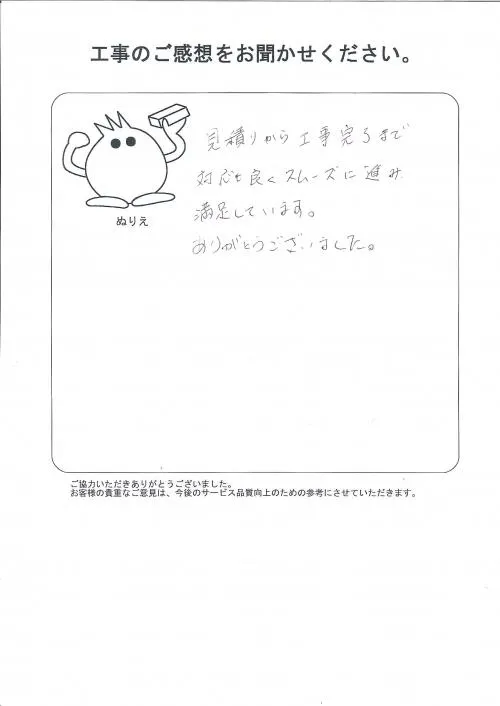 工事のご感想をお聞かせください。
見積りから工事完了まで
対応も良くスムーズに進み
満足しています。
ありがとうございました。
ぬりえ
ご協力いただきありがとうございました。
お客様の貴重なご意見は、今後のサービス品質向上のための参考にさせていただきます。